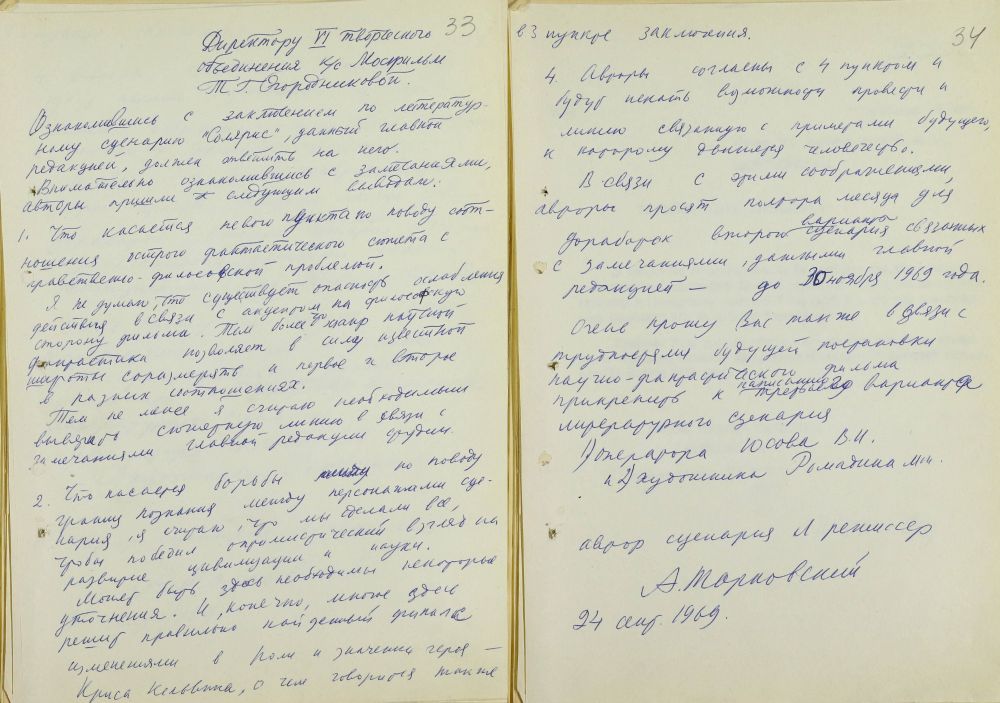 33
Директору VI творческого
объединения к/с Мосфильм
Т. Г. Огородниковой.
Ознакомившись с заключением по литератур-
ному сценарию "Солярис", данный главной
редакцией, должен ответить на него.
Внимательно ознакомившись с замечаниями,
авторы пришли к следующим выводам:
1. Что касается первого пункта по поводу соот-
ношения острого фантастического сюжета с
нравственно-философской проблемой.
Я не думаю что существует опасность ослабления
действия в связи с акцентом на философскую
сторону фильма. Тем более, что жанр научной
фантастики позволяет в силу известной
широты соразмерять и первое и второе
в разных соотношениях.
Тем не менее я считаю необходимым
выверить сюжетную линию в связи с
замечаниями главной редакции студии.
2. Что касается борьбы по поводу
границ познания между персонажами сце-
нария, я считаю что мы сделали все,
чтобы победил оптимистический взгляд на
развитие цивилизации и науки.
Может быть здесь необходимы некоторые
уточнения. И, конечно, многое здесь
решит правильно найденный финал с
изменениями в роли и значении героя —
Криса Кельвина, о чем говорится также
34
в 3 пункте заключения.
4. Авторы согласны с 4 пунктом и
будут искать возможности провести и
линию связанную с примерами будущего,
к которому движется человечество.
В связи с этими соображениями,
авторы просят полтора месяца для
доработок второго варианта сценария связанных
с замечаниями, данными главной
редакцией — до 30 ноября 1969 года.
Очень прошу Вас также в связи с
трудностями будущей постановки
научно-фантастического фильма
прикрепить к написанию третьего варианта
литературного сценария
1) оператора Юсова В. И.
и 2) художника Ромадина М. Н.
автор сценария и режиссер
А. Тарковский
24 сент. 1969.